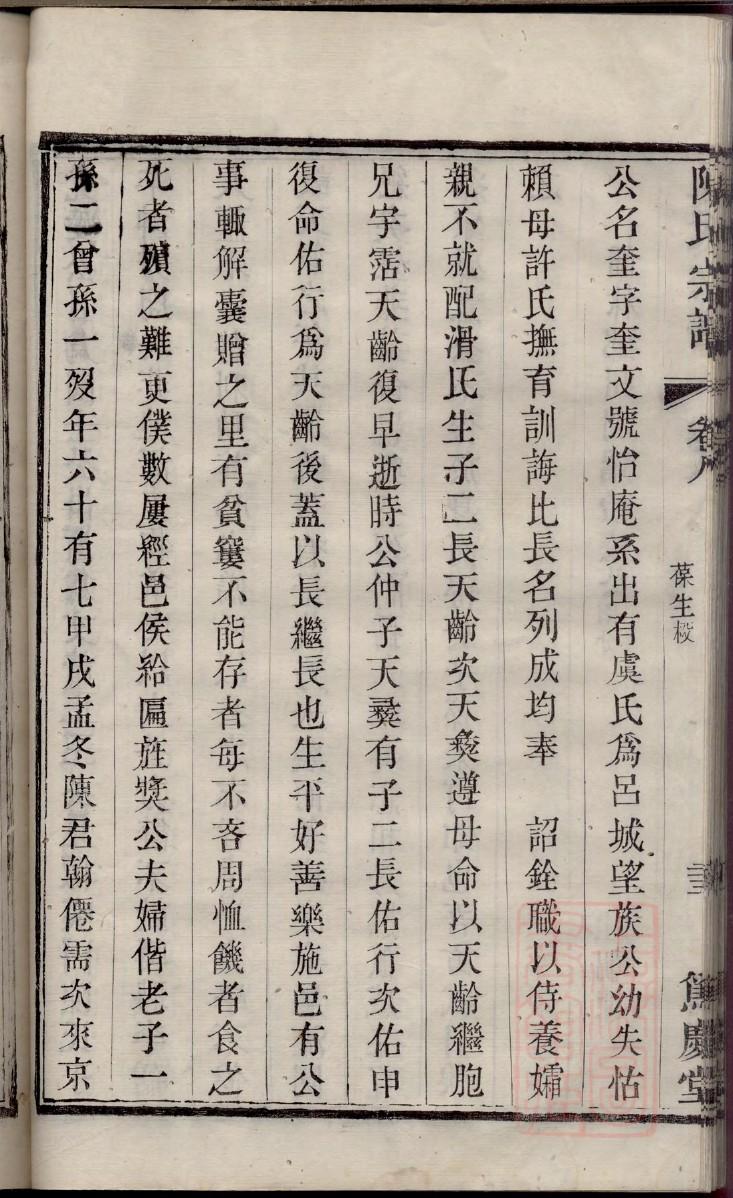 陳氏宗譜 卷八
葆生梭
篤慶堂
公名奎字奎文號怡庵系出有虞氏爲呂城望族公幼失怙
賴母許氏撫育訓誨比長名列成均奉 詔銓職以侍養孀
親不就配滑氏生子二長天齡次天彜遵母命以天齡繼胞
兄字霑天齡復早逝時公仲子天彜有子二長佑行次佑申
復命佑行爲天齡後蓋以長繼長也生平好善樂施邑有公
事輙解囊贈之里有貧窶不能存者每不吝周恤饑者食之
死者殯之難更僕數屢經邑侯給匾旌獎公夫婦偕老子一
孫二曾孫一歿年六十有七甲戌孟冬陳君翰僊需次來京